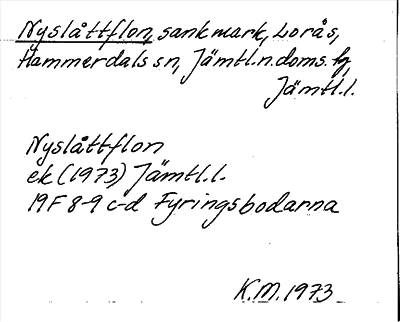 Nyslåttflon, sank mark, Lorås,
Hammerdals sn, Jämtl. n. doms. hg
Jämtl. l.
Nyslåttflon
ek (1973) Jämtl. l.
19F 8-9 c-d Fyringsbodarna
K.M. 1973